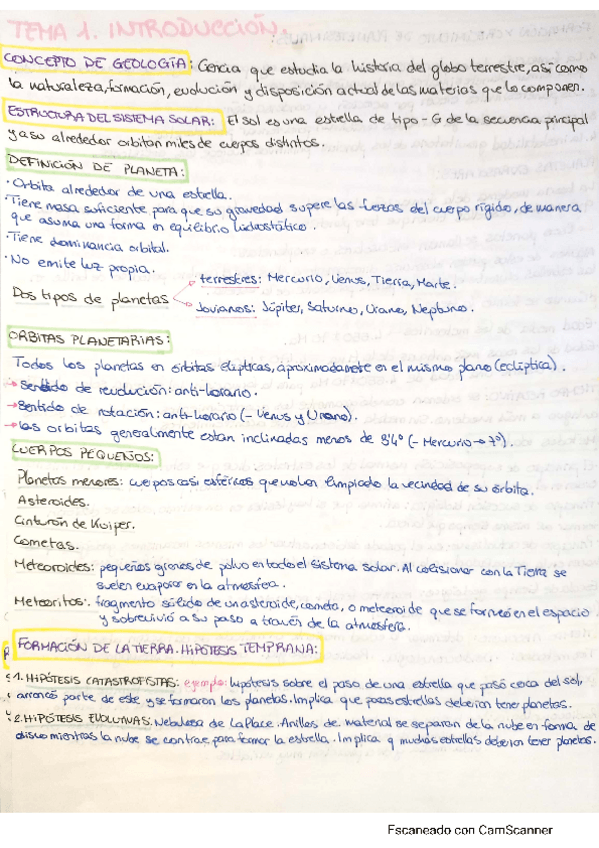 TEMA 1. INTRODUCCIÓN
CONCEPTO DE GEOLOGÍA: Ciencia que estudia la historia del globo terrestre, así como
la naturaleza, formación, evolución y disposición actual de las materias que lo componen.
ESTRUCTURA DEL SISTEMA SOLAR: El sol es una estrella de tipo-G de la secuencia principal
y a su alrededor orbitan miles de cuerpos distintos.
DEFINICIÓN DE PLANETA:
· Orbita alrededor de una estrella.
· Tiene masa suficiente para que su gravedad supere las fuerzas del cuerpo rígido, de manera
que asuma una forma en equilibrio hidrostático.
· Tiene dominancia orbital.
· No emite luz propia.
Dos tipos de planetas
terrestres: Mercurio, Venus, Tierra, Marte.
Jovianos: Júpiter, Saturno, Urano, Neptuno.
ORBITAS PLANETARIAS:
Todos los planetas en órbitas elípticas, aproximadamente en el mismo plano (eclíptica).
→ Sentido de revolución: anti-horario.
→ Sentido de rotación: anti-horario (- Venus y Urano).
→ Las orbitas generalmente estan inclinadas menos de 3'4° (- Mercurio → 7°).
CUERPOS PEQUEÑOS:
Planetas menores: cuerpos casi esféricos que no han limpiado la vecindad de su órbita.
Asteroides.
Cinturón de Kuiper.
Cometas.
Meteoroides: pequeños granos de polvo en todo el sistema solar. Al colisionar con la Tierra se
suelen evaporar en la atmósfera.
Meteoritos: fragmento sólido de un asteroide, cometa, o meteoroide que se formó en el espacio
y sobrevivió a su paso a través de la atmósfera.
FORMACIÓN DE LA TIERRA. HIPÓTESIS TEMPRANA:
1. HIPÓTESIS CATASTROFISTAS: ejemplo: hipótesis sobre el paso de una estrella que pasó cerca del sol,
arrancó parte de este y se formaron los planetas. Implica que pocas estrellas deberían tener planetas.
2. HIPÓTESIS EVOLUTIVAS: Nebulosa de LaPlace. Anillos de material se separan de la nube en forma de
disco mientras la nube se contrae para formar la estrella. Implica q muchas estrellas deberían tener planetas.
Escaneado con CamScanner